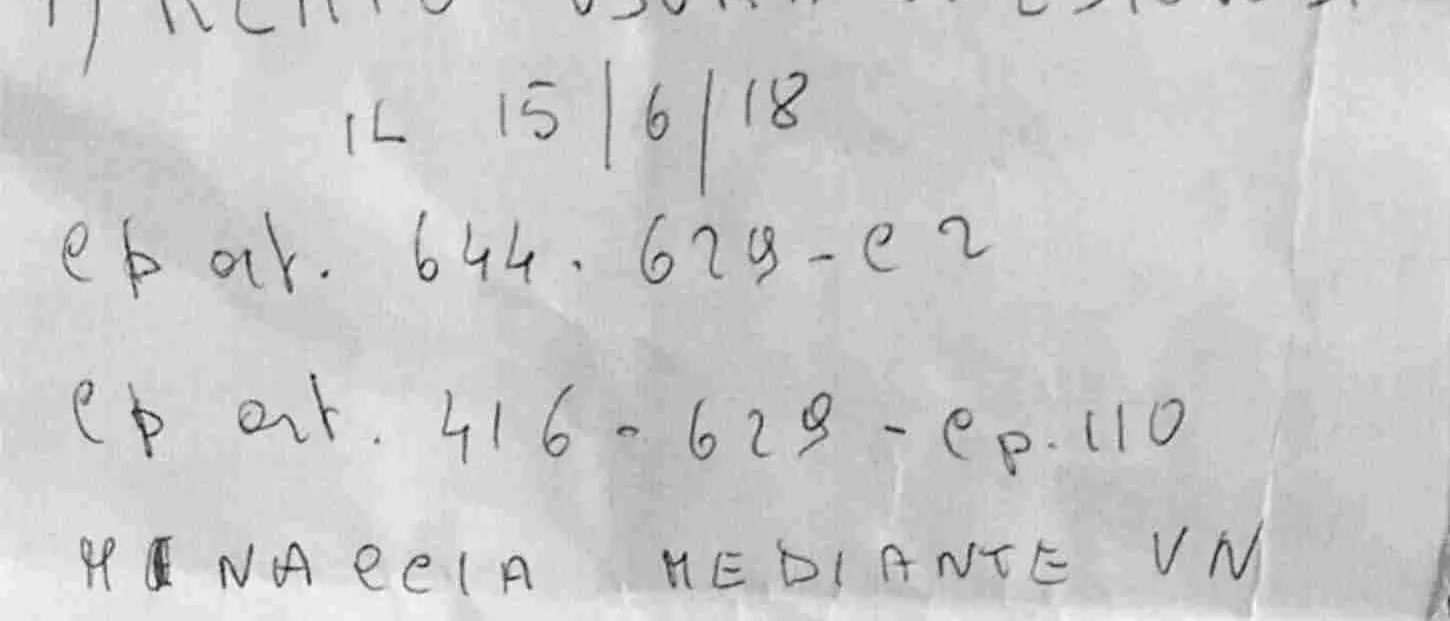 1) REATO USURA
IL 15/6/18
cp art. 644. 629-c2
cp art. 416-629-cp.110
MINACCIA MEDIANTE UN